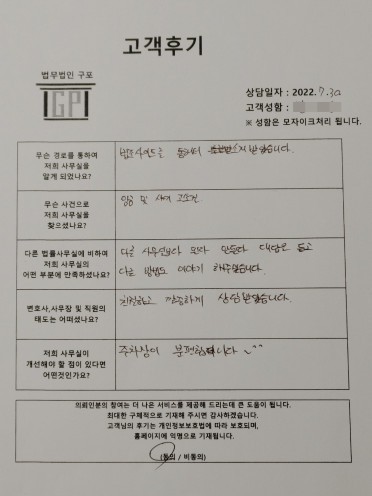 고객후기
법무법인 구포
GP
상담일자 : 2022. 7. 30
고객성함 :
※ 성함은 모자이크처리 됩니다.
무슨 경로를 통하여
저희 사무실을
알게 되었나요?
무슨 사건으로
저희 사무실을
찾으셨나요?
임금 및 사기 고소건
다른 법률사무실에 비하여
저희 사무실의
어떤 부분에 만족하셨나요?
다른 사무실보다 모자 만들다 대답은 듣고
다른 방법도 이야기 해주었습니다.
변호사,사무장 및 직원의
태도는 어떠셨나요?
친절하고 꼼꼼하게 상담받았습니다.
저희 사무실이
개선해야 할 점이 있다면
어떤것인가요?
주차장이 불편합니다 ^^
의뢰인분의 참여는 더 나은 서비스를 제공해 드리는데 큰 도움이 됩니다.
최대한 구체적으로 기재해 주시면 감사하겠습니다.
고객님의 후기는 개인정보보호법에 따라 보호되며,
홈페이지에 익명으로 기재됩니다.
(동의 / 비동의)